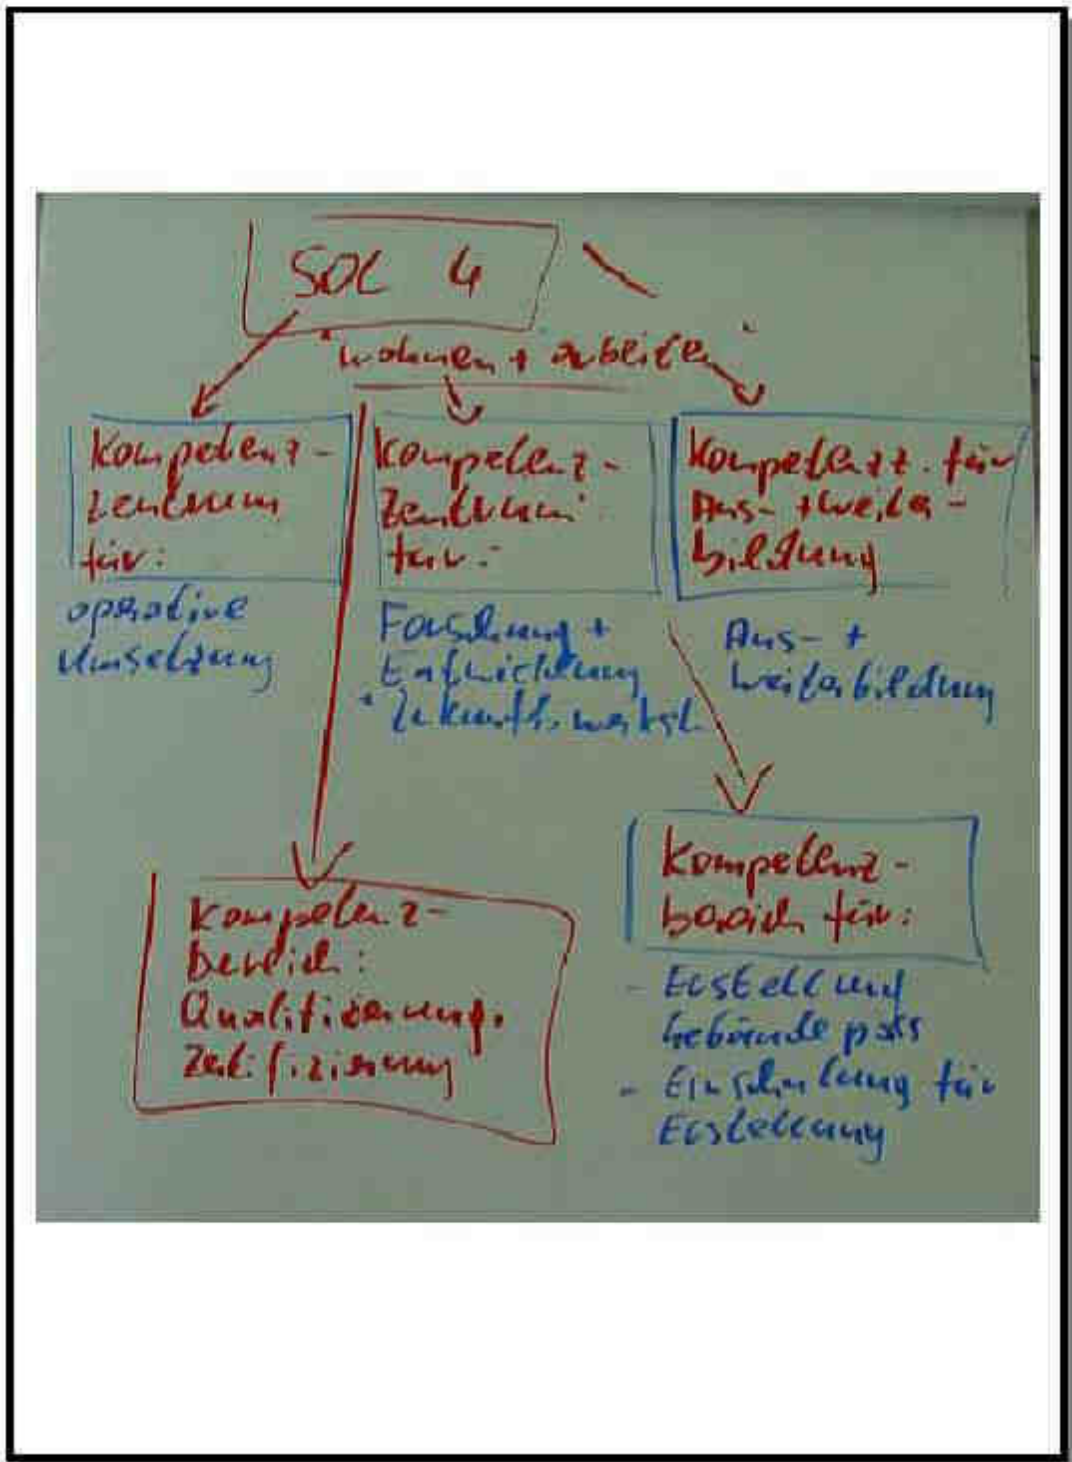 SOL 4
"wohnen + arbeiten"
Kompetenz-
zentrum
für:
operative
Umsetzung
Kompetenz-
Zentrum
für:
Forschung +
Entwicklung
"Zukunftswerkst.
Kompetenzz. für
Aus- + Weiter-
bildung
Aus- +
Weiterbildung
Kompetenz-
bereich:
Qualifizierung,
Zertifizierung
Kompetenz-
bereich für:
- Erstellung
Gebäudepass
- Einschulung für
Erstellung